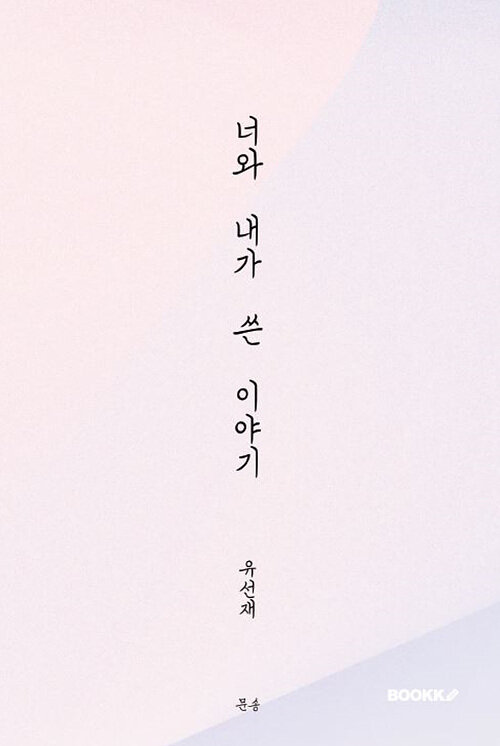 너와 내가 쓴 이야기
유선재
문송
BOOKK